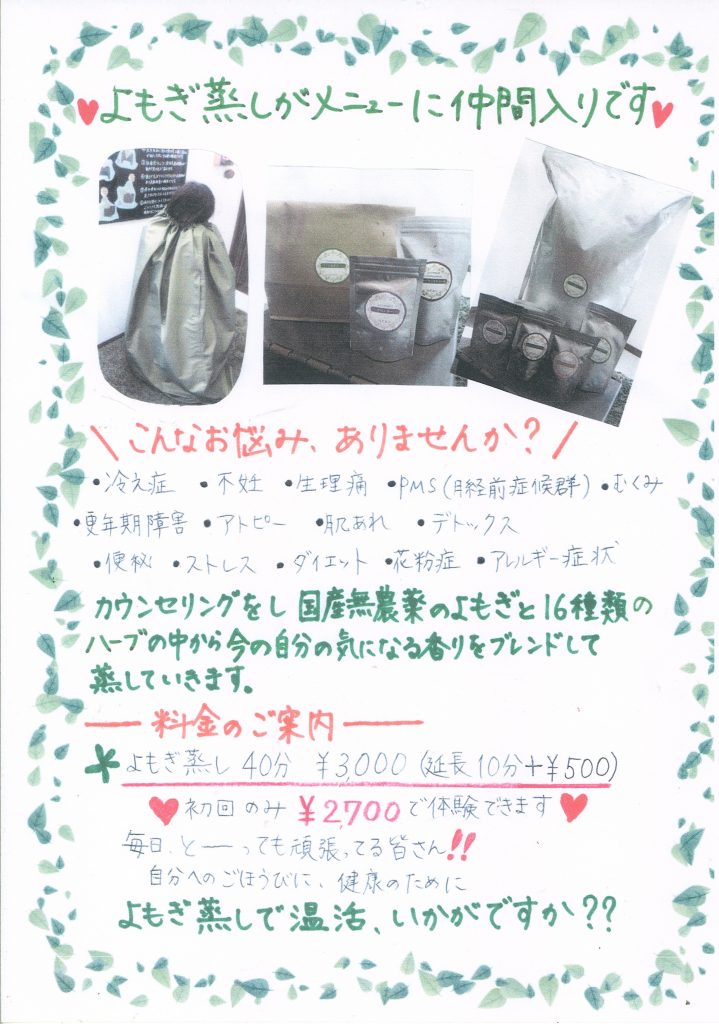 よもぎ蒸しがメニューに仲間入りです
\こんなお悩み、ありませんか?/
•冷え症 •不妊 •生理痛 •PMS(月経前症候群) •むくみ
•更年期障害 •アトピー •肌あれ •デトックス
•便秘 •ストレス •ダイエット •花粉症 •アレルギー症状
カウンセリングをし国産無農薬のよもぎと16種類の
ハーブの中から今の自分の気になる香りをブレンドして
蒸していきます。
料金のご案内
よもぎ蒸し 40分 ¥3,000 (延長10分+¥500)
初回のみ ¥2,700で体験できます
毎日、と――っても頑張ってる皆さん!!
自分へのごほうびに、健康のために
よもぎ蒸しで温活、いかがですか??